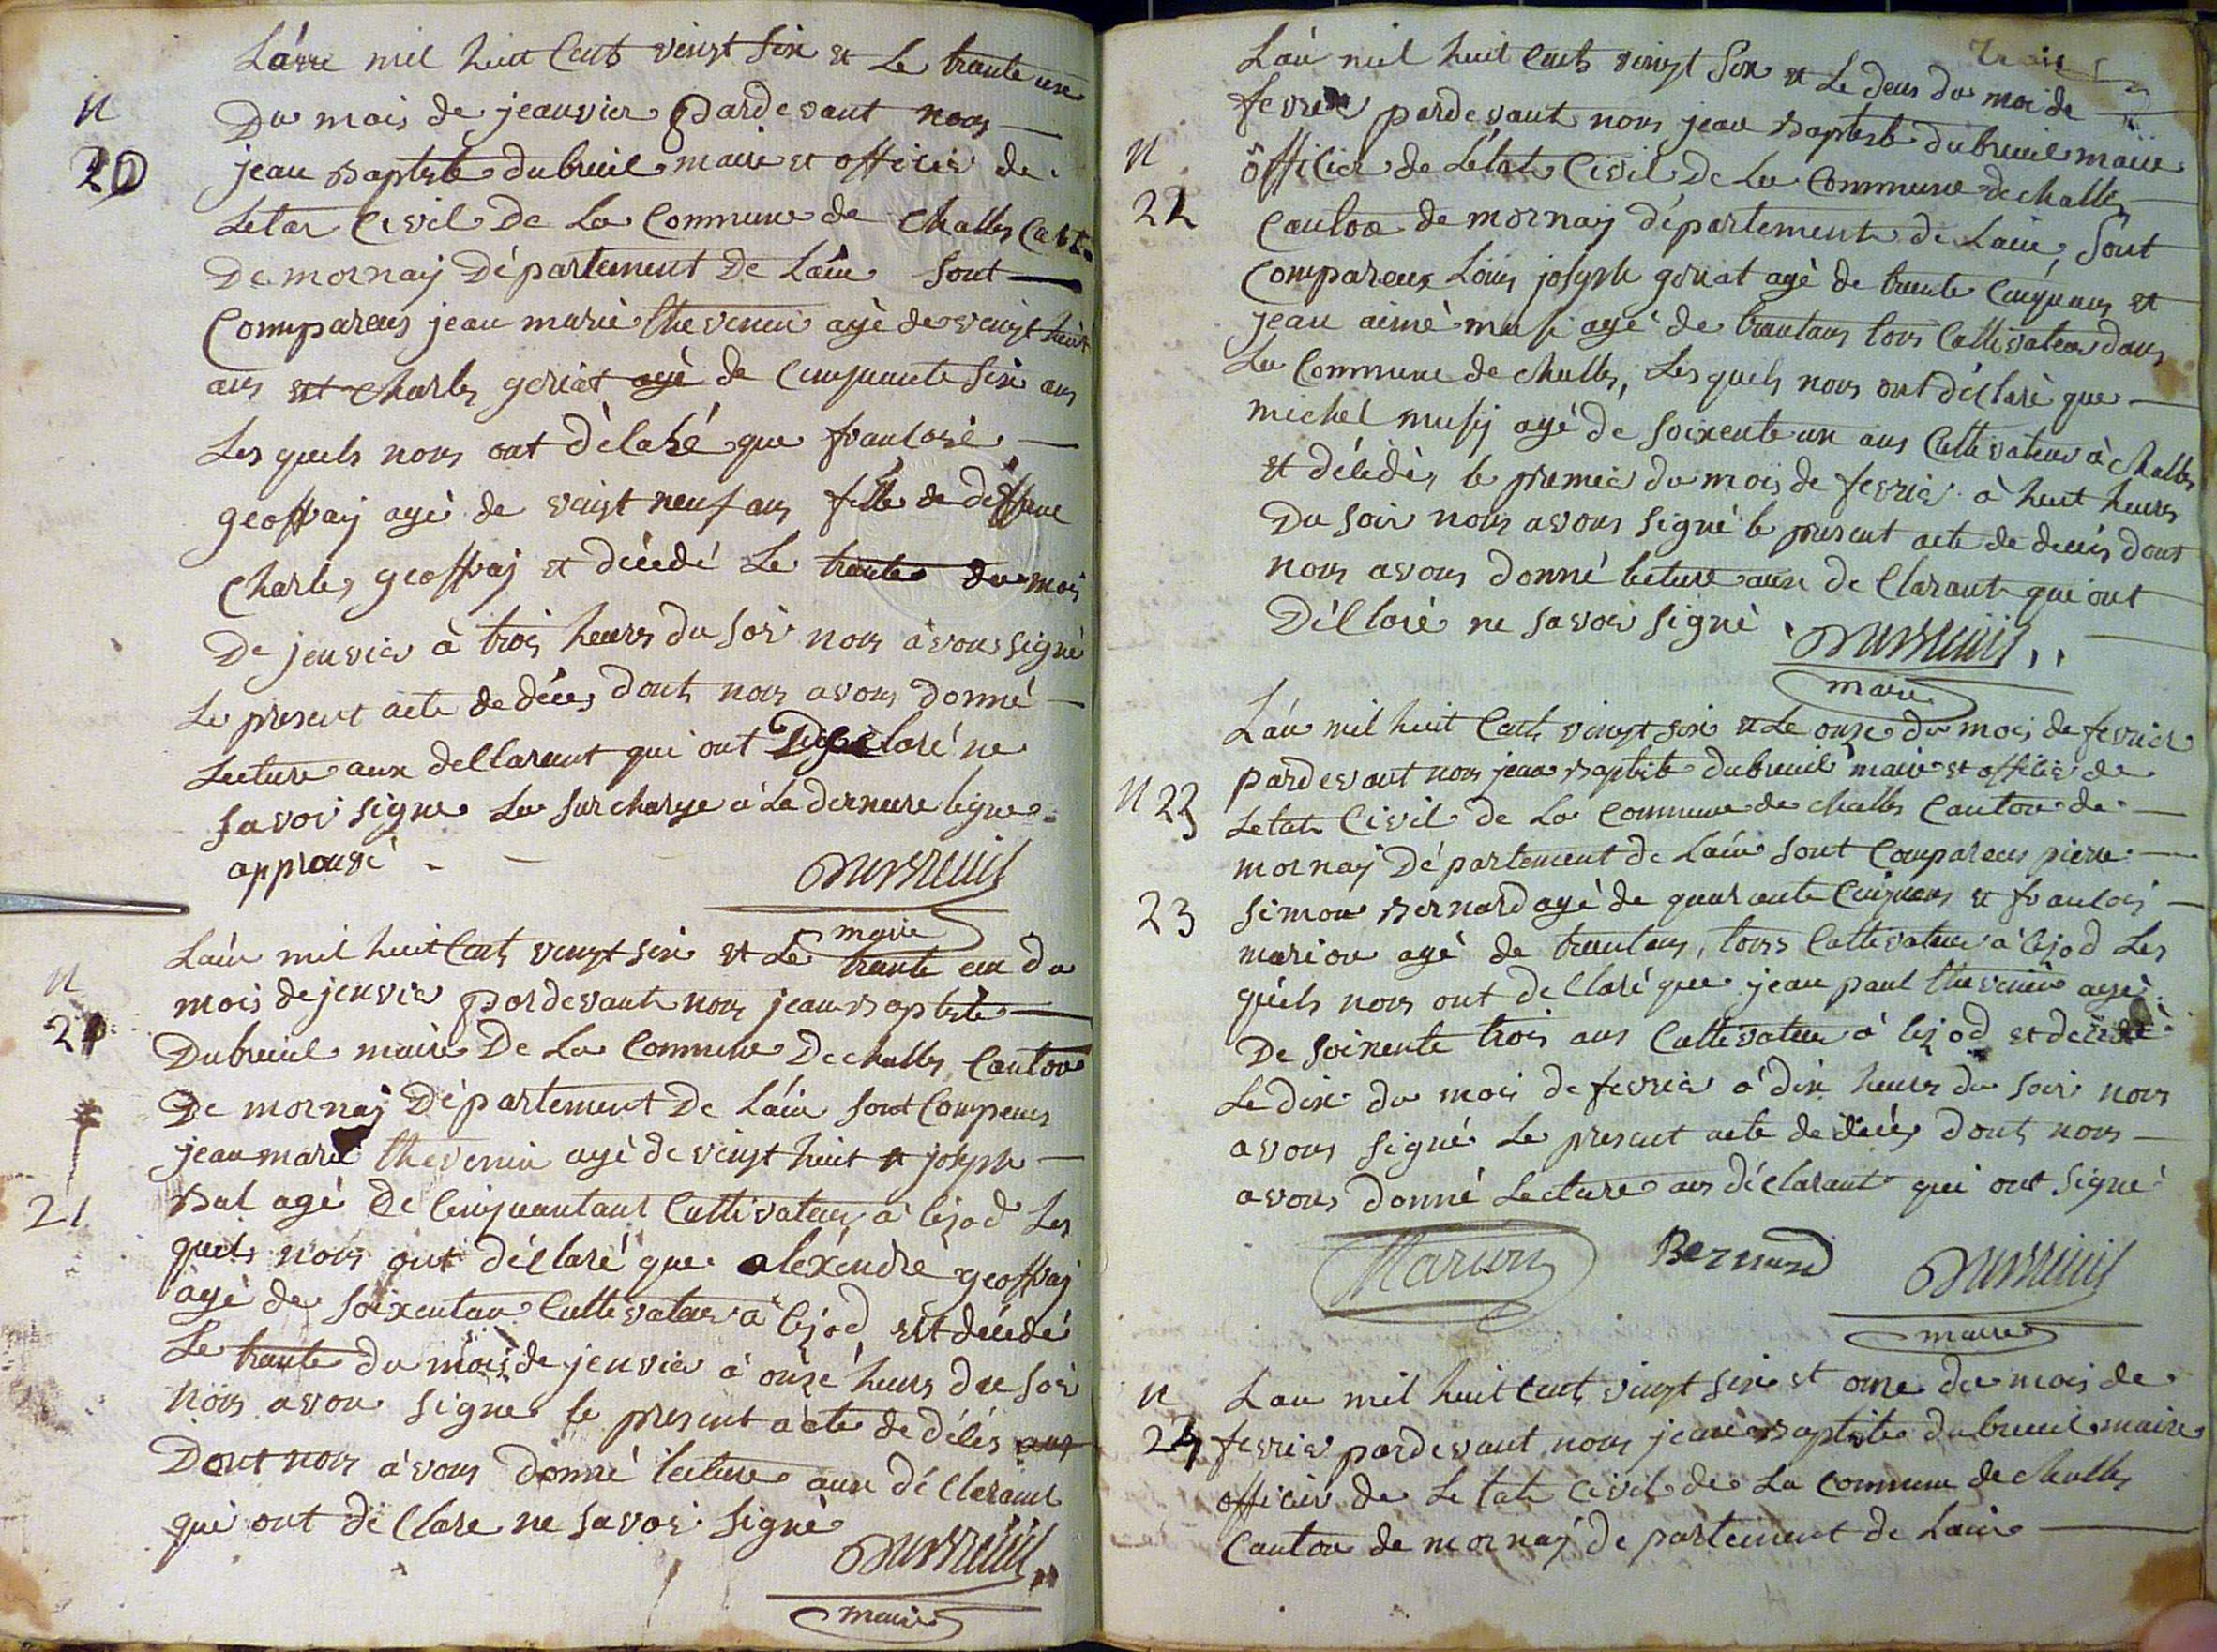 L'ánn mil huit Cents vingt Six et Le trante un
N
Du mois de jeanvier pardevant nous
20
jean Baptiste dubreuil maire et officier de
Letat Civil De La Commune de Challes Cant.
De mornay Département De L'áin Sont
Comparens jean marie thevenin agé de vingt huit
ans et Charles goriat agé de Cinquante Six ans
Les quels nous ont Déláré que francoise
geoffray agé de vingt neuf ans fille de deffunt
Charles geoffray et décédé Le trante du mois
De jenvier à trois heures du Soir nous avons signé
Le present acte de décès dont nous avons donné
Lecture aux dellarant qui ont Déclaré ne
Savoir signe La Surcharge à La derniere ligne
approuvé
Dubreuil
maire
L'áin mil huit Cent vingt Six et Le trante un du
N
mois de jenvier pardevant nous jean Baptiste
21
Dubreuil maire De La Commune De challes Canton
De mornay Département De L'áin Sont Comparus
jean marie thevenin agé de vingt huit et joseph
21
Bal agé De Cinquantans Cultivateur à Lejod Les
quels nous ont déclaré que aléxendre geoffray
agé de Soixentan Cultivateur à Lejod est décédé
Le trante du mois de jenvier à onze heures du Soir
nous avon signe le present acte de déces
Dont nous avons donné lecture aux déclarant
qui ont déclare ne Savoir signé
Dubreuil
maire
trois
L'án mil huit Cents vingt Six et Le deux du moi de
fevrier pardevant nous jean Baptiste dubreuil maire
N
officier de L'état Civil De La Commune de challes
22
Canton de mornay département de Lain, Sont
Comparens Louis joseph goriat agé de trante Cinq ans et
jean aimé musi agé de trantans tous Cultivateur dans
La Commune de challes, Les quels nous ont déclaré que
michel musy agé de Soixente un ans Cultivateur à challes
et décédé, le premier du mois de fevrier à huit heures
Du soir nous avons signé le present acte de décès dont
nous avons donné lecture aux de Clarant qui ont
Déllaré ne savoir signé
Dubreuil
maire
L'án mil huit Cent vingt six et Le onze du mois de fevrier
pardevant nous jean Baptiste dubreuil maire et officier de
N 23
Letat Civil de La Commune de challes Canton de
mornay Département de L'áin Sont Comparens pierre
23
Simon Bernard agé de quarante Cinq ans et francois
marion agé de trantans, tous Cultivateur à Lejod Les
quels nous ont dellaré que jean paul thevenin agé
De Soixente trois ans Cultivateur à lejod et décédé
Le dix du mois de fevrier à dix heures du Soir nous
avons signé Le present acte de décès dont nous
avons donné Lecture aux déclarant qui ont signé
Marion Bernard Dubreuil
maire
N
L an mil huit Cent vingt six et onze du mois de
24
fevrier pardevant nous jean Baptiste dubreuil maire
officier de Letat Civil de La Commune de challes
Canton de mornay département de Lain